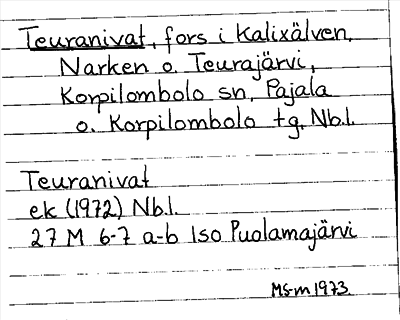 Teuranivat, fors i Kalixälven,
Narken o. Teurajärvi,
Korpilombolo sn, Pajala
o. Korpilombolo tg. Nb.l.
Teuranivat
ek (1972) Nb.l.
27 M 6-7 a-b Iso Puolamajärvi
MS-m 1973